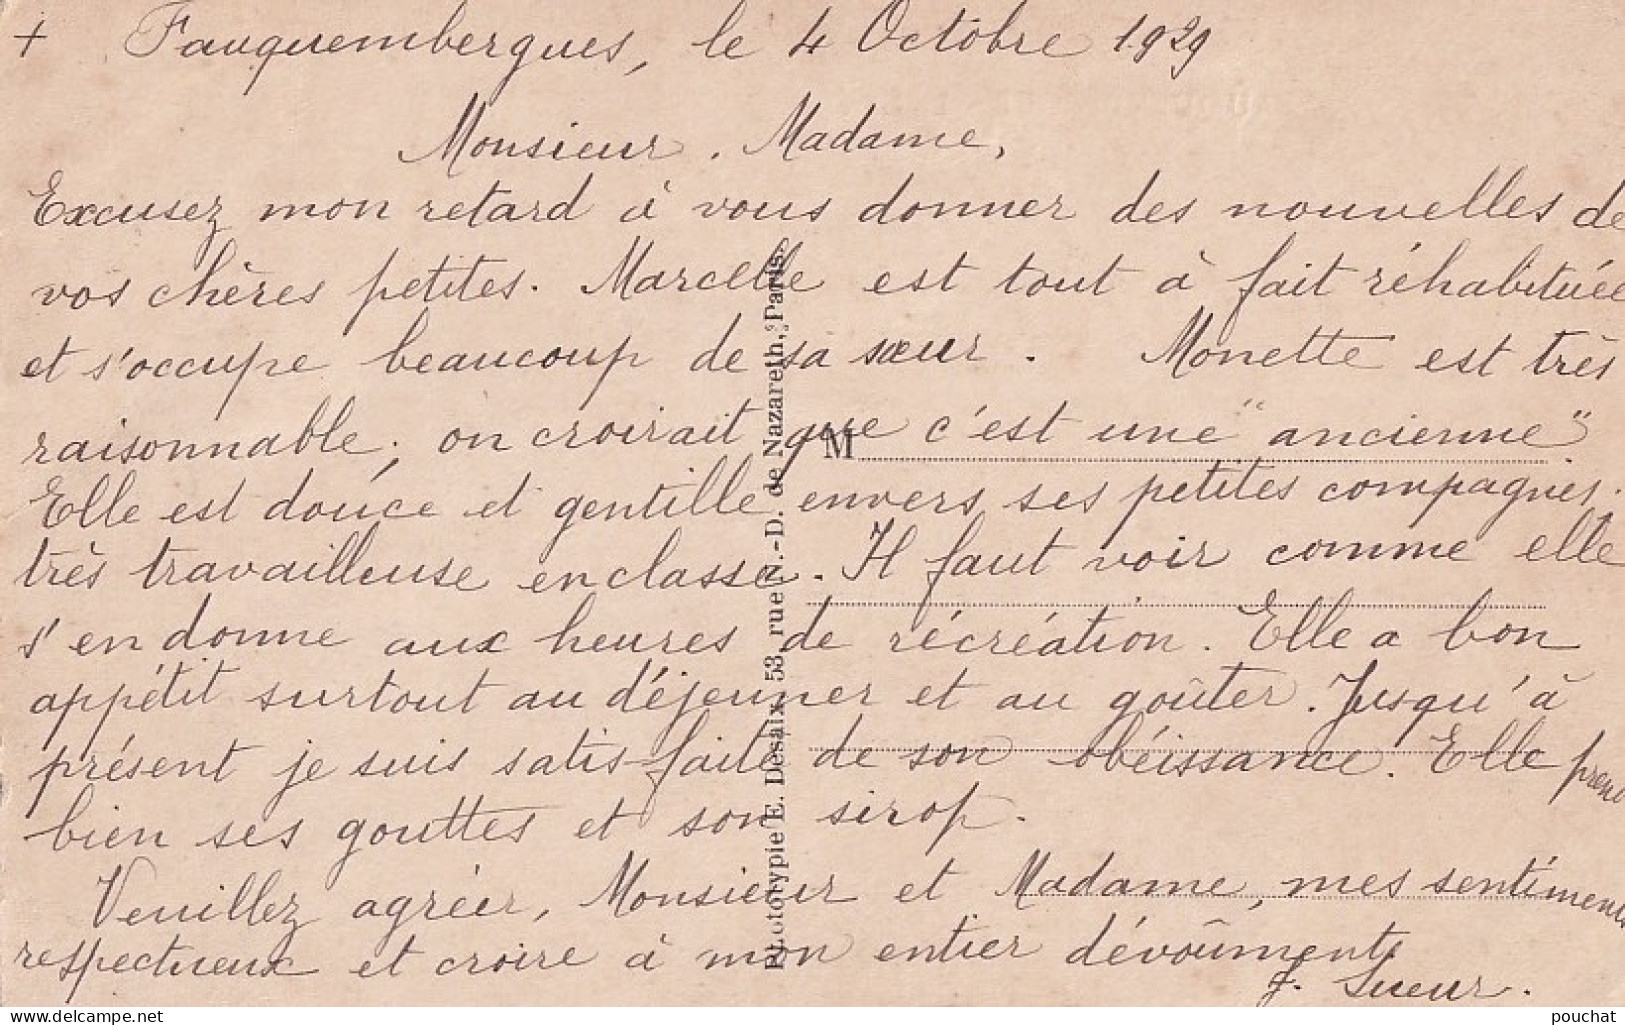 + Fauquembergues, le 4 Octobre 1929
Monsieur, Madame,
Excusez mon retard à vous donner des nouvelles de
vos chères petites. Marcelle est tout à fait réhabituée
et s'occupe beaucoup de sa sœur. Monette est très
raisonnable; on croirait que c'est une "ancienne"
Elle est douce et gentille envers ses petites compagnes.
très travailleuse en classe. Il faut voir comme elle
s'en donne aux heures de récréation. Elle a bon
appétit surtout au déjeuner et au goûter. Jusqu'à
présent je suis satisfaite de son obéissance. Elle prend
bien ses gouttes et son sirop.
Veuillez agréer, Monsieur et Madame, mes sentiments
respectueux et croire à mon entier dévoûment
J. Sueur.
M
Phototypie E. Desaix, 53, rue N.-D. de Nazareth, Paris.
pouchat